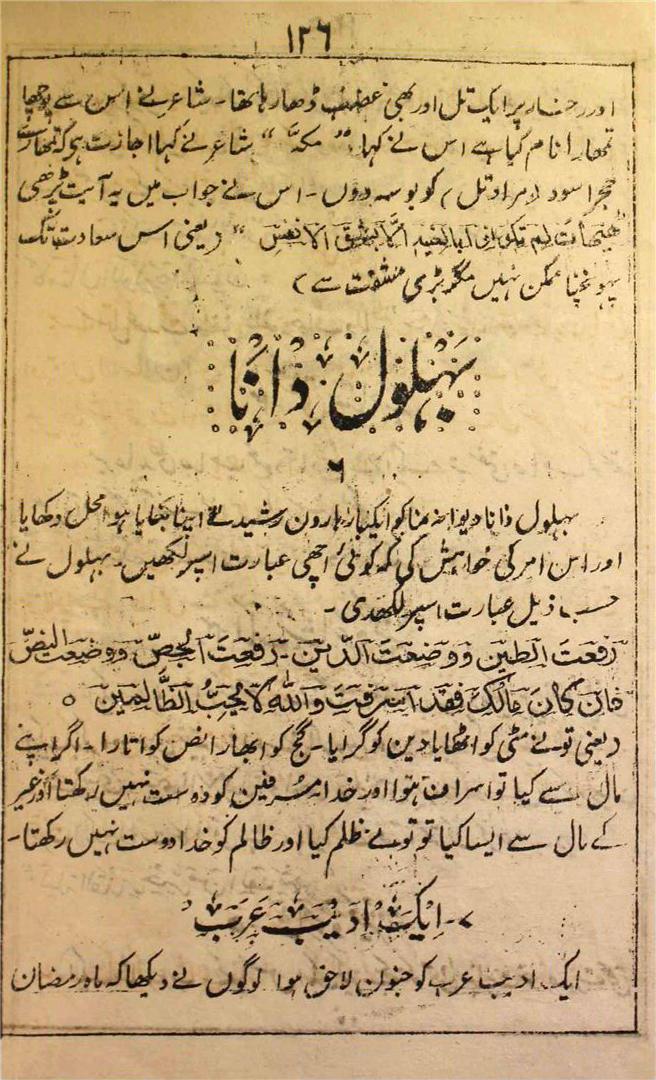 ۱۲۶
اور رخسار پر ایک تل اور بھی غضب ڈھا رہا تھا۔ شاعر نے اس سے پوچھا
تمھارا نام کیا ہے اس نے کہا۔ "مکہ" شاعر نے کہا اجازت ہو کہ تمھارے
حجر اسود (مراد تل) کو بوسہ دوں۔ اس نے جواب میں یہ آیت پڑھی
ھیھات لم تکونوا بالغیہ الا بشق الانفس" (یعنی اس سعادت تک
پہونچنا ممکن نہیں مگر بڑی مشقت سے)
بہلول دانا
۶
بہلول دانا دیوانہ نما کو ایکبار ہارون رشید نے اپنا بنایا ہوا محل دکھایا
اور اس امر کی خواہش کی کہ کوئی اچھی عبارت اسپر لکھیں۔ بہلول نے
حسب ذیل عبارت اسپر لکھدی۔
رَفَعتَ الطین ووضعتَ الدّین۔ رفعتَ الجصّ ووضعتَ النصّ
فان کان مالک فقد اسرفتَ واللہ لا یُحِبُّ الظّالمین ○
(یعنی تو نے مٹی کو اٹھایا دین کو گرایا۔ گچ کو ابھارا نص کو اتارا۔ اگر اپنے
مال سے کیا تو اسراف ہوا اور خدا مسرفین کو دوست نہیں رکھتا اور غیر
کے مال سے ایسا کیا تو تو نے ظلم کیا اور ظالم کو خدا دوست نہیں رکھتا۔
۷۔ ایک ادیب عرب
ایک ادیب عرب کو جنون لاحق ہوا لوگوں نے دیکھا کہ ماہ رمضان